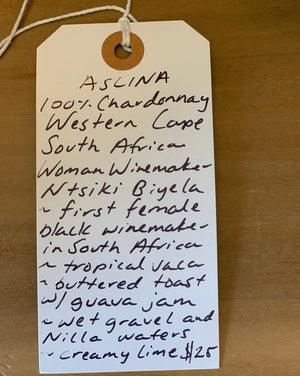 ASLINA
100% Chardonnay
Western Cape
South Africa
Woman Winemaker
Ntsiki Biyela
~ first female
black winemaker
in South Africa
~ tropical vaca
~ buttered toast
w/ guava jam
~ wet gravel and
Nilla waters
~ creamy lime $25